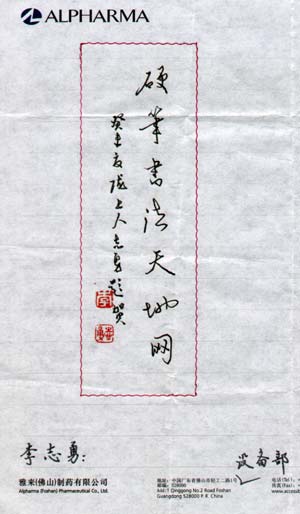 ALPHARMA
硬筆書法天地網
癸未夏陇上人志勇题贺
李
李志勇:
设备部
雅来(佛山)制药有限公司
Alpharma (Foshan) Pharmaceutical Co., Ltd.
地址: 中国广东省佛山市轻工二路1号
邮编: 528000
Add: 1 Qinggong No.2 Road Foshan
Guangdong 528000 P. R. China
电话(Tel.)
传真(Fax)